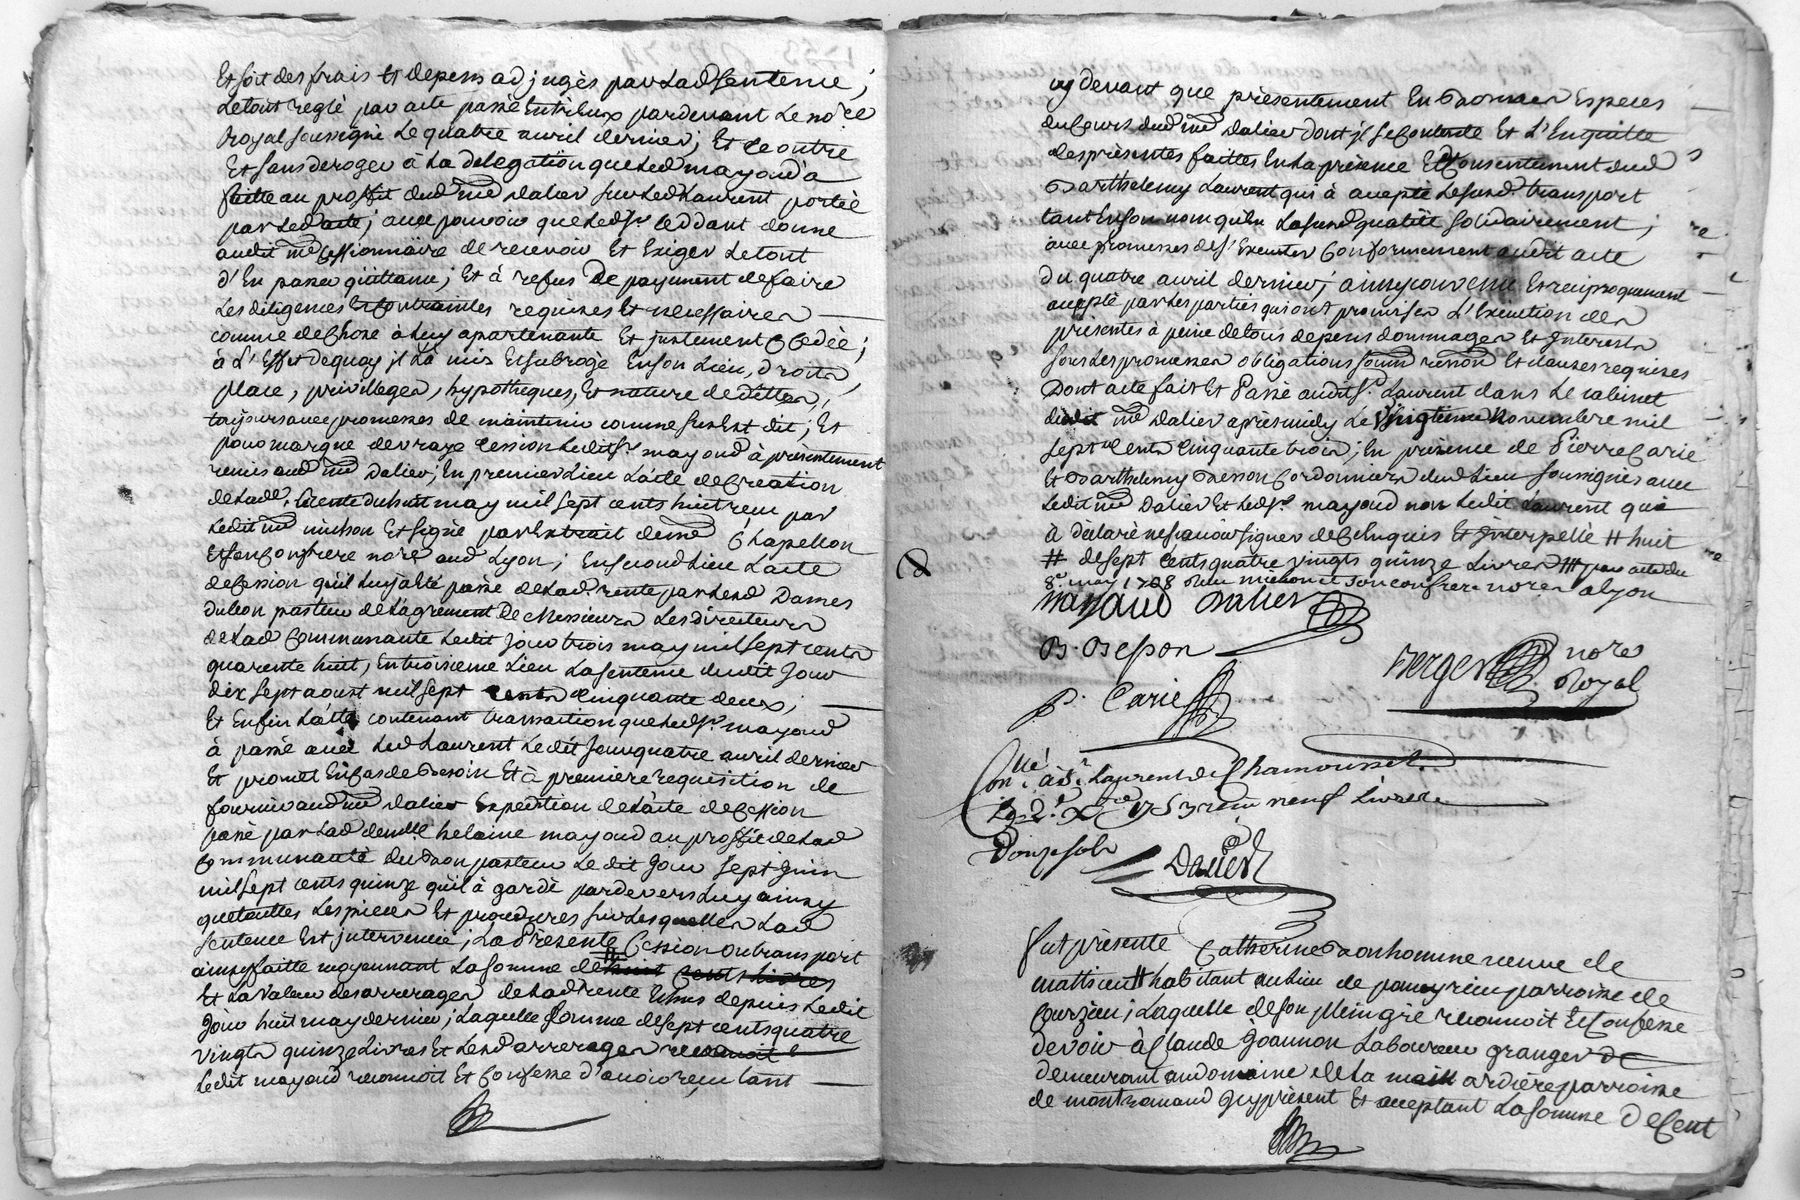 Et soit des frais et depens adjugés par lad sentence;
Le tout reglé par acte passé Entr'Eux pardevant Le no.re
Royal soussigné Le quatre avril dernier; Et ce outre
Et sans deroger à La delegation que led mayoud à
faitte au proffit dud m.e dalier sur led Laurent portée
par led acte; avec pouvoir que led s.r Ceddant donne
audit m.e Cessionnaire de recevoir Et Exiger Le tout
d'En passer quittance; Et à refus de payement de faire
Les diligences Et Contraintes requises Et necessaires
comme de Chose à Luy apartenante Et justement Cedée;
à L'Effet dequoy il L'à mis Et subrogé En son Lieu, droits,
place, privilleges, hypotheques, Et nature de dettes,
toujours avec promesses de maintenir comme sus Est dit; Et
pour marque de vraye Cession Ledit s.r mayoud à presentement
remis aud m.e dalier; En premier Lieu L'acte de Creation
de lad. Rente du huit may mil sept cents huit reçu par
Ledit m.e michon Et signé par Extrait de m.e Chapellon
Et son Confrere no.re aud Lyon; En second Lieu L'acte
de Cession qu'il Luy à Eté passé de lad. rente par lesd Dames
du bon pasteur de L'agrement De Messieurs Les directeurs
de lad Communauté Ledit jour trois may mil sept cents
quarente huit, En troisieme Lieu La sentence dudit jour
dix sept aoust mil sept cents cinquante deux;
Et Enfin L'acte contenant transaction que led s.r mayoud
à passé avec Led Laurent Ledit jour quatre avril dernier
Et promet En Cas de Besoin Et à premiere requisition de
fournir aud m.e dalier Expedition de L'acte de Cession
passé par lad dem.lle helaine mayoud au proffit de lad
Communauté du Bon pasteur Ledit jour sept juin
mil sept cents quinze qu'il à gardé pardevers Luy ainsy
que touttes Les pieces Et procedures sur Lesquelles Lad
sentence Est intervenüe; La Presente Cession ou transport
ainsy faitte moyennant La somme de # huit cent Livres
Et La valeur des arrerages de lad rente Echus depuis Ledit
jour huit may dernier; Laquelle somme de sept cents quatre
vingts quinze Livres Et Lesd arrerages reconnoit
Ledit mayoud reconnoit Et Confesse d'avoir reçu tant
cy devant que présentement En Bonnes Especes
du Cours dud m.e dalier dont il se Contente Et L'En quitte
des présentes faittes En La présence Et Consentement dud
Barthelemy Laurent qui à accepté Le susd. transport
tant En son nom qu'En La susd qualité solidairement;
avec promesses de s'Executer Conformement audit acte
du quatre avril dernier; ainsy convenu Et reciproquement
accepté par Les parties qui ont promis sen L'Execution des
présentes à peine de tous depens dommages Et Interests
sous Les promesses obligations soum renon Et clauses requises
Dont acte fait Et Passé audit s.t Laurent dans Le cabinet
dudit m.e dalier après midy Le Vingtieme Novembre mil
sept Cents Cinquante trois; En présence de Pierre Carie
Et Barthelemy Besson Cordonniers dud Lieu soussignés avec
Ledit m.e Dalier Et led s.r mayoud non Ledit Laurent qui
à déclaré ne sçavoir signer de Ce Enquis Et Interpellé # huit
# de sept Cents quatre vingts quinze Livres # par acte du
8.e may 1708 Reçu michon et son confrere no.res a Lyon
mayoud Dalier
B. Besson
Berger no.re
Royal
P. Carie
Con.llé à S.t Laurent de Chamousset
Le 2.e X.bre 1753 reçu neuf Livres
Douze sols
Dalier
fut présente Catherine Bonhomme veuve de
mattieu # habitant au Lieu de pomeyrieu parroisse de
Courzieu; Laquelle de son plein gré reconnoit Et Confesse
devoir à Claude Joannon Laboureur granger
demeurant au domaine de La mardiere parroisse
de montromand icy présent Et acceptant La somme De Cent